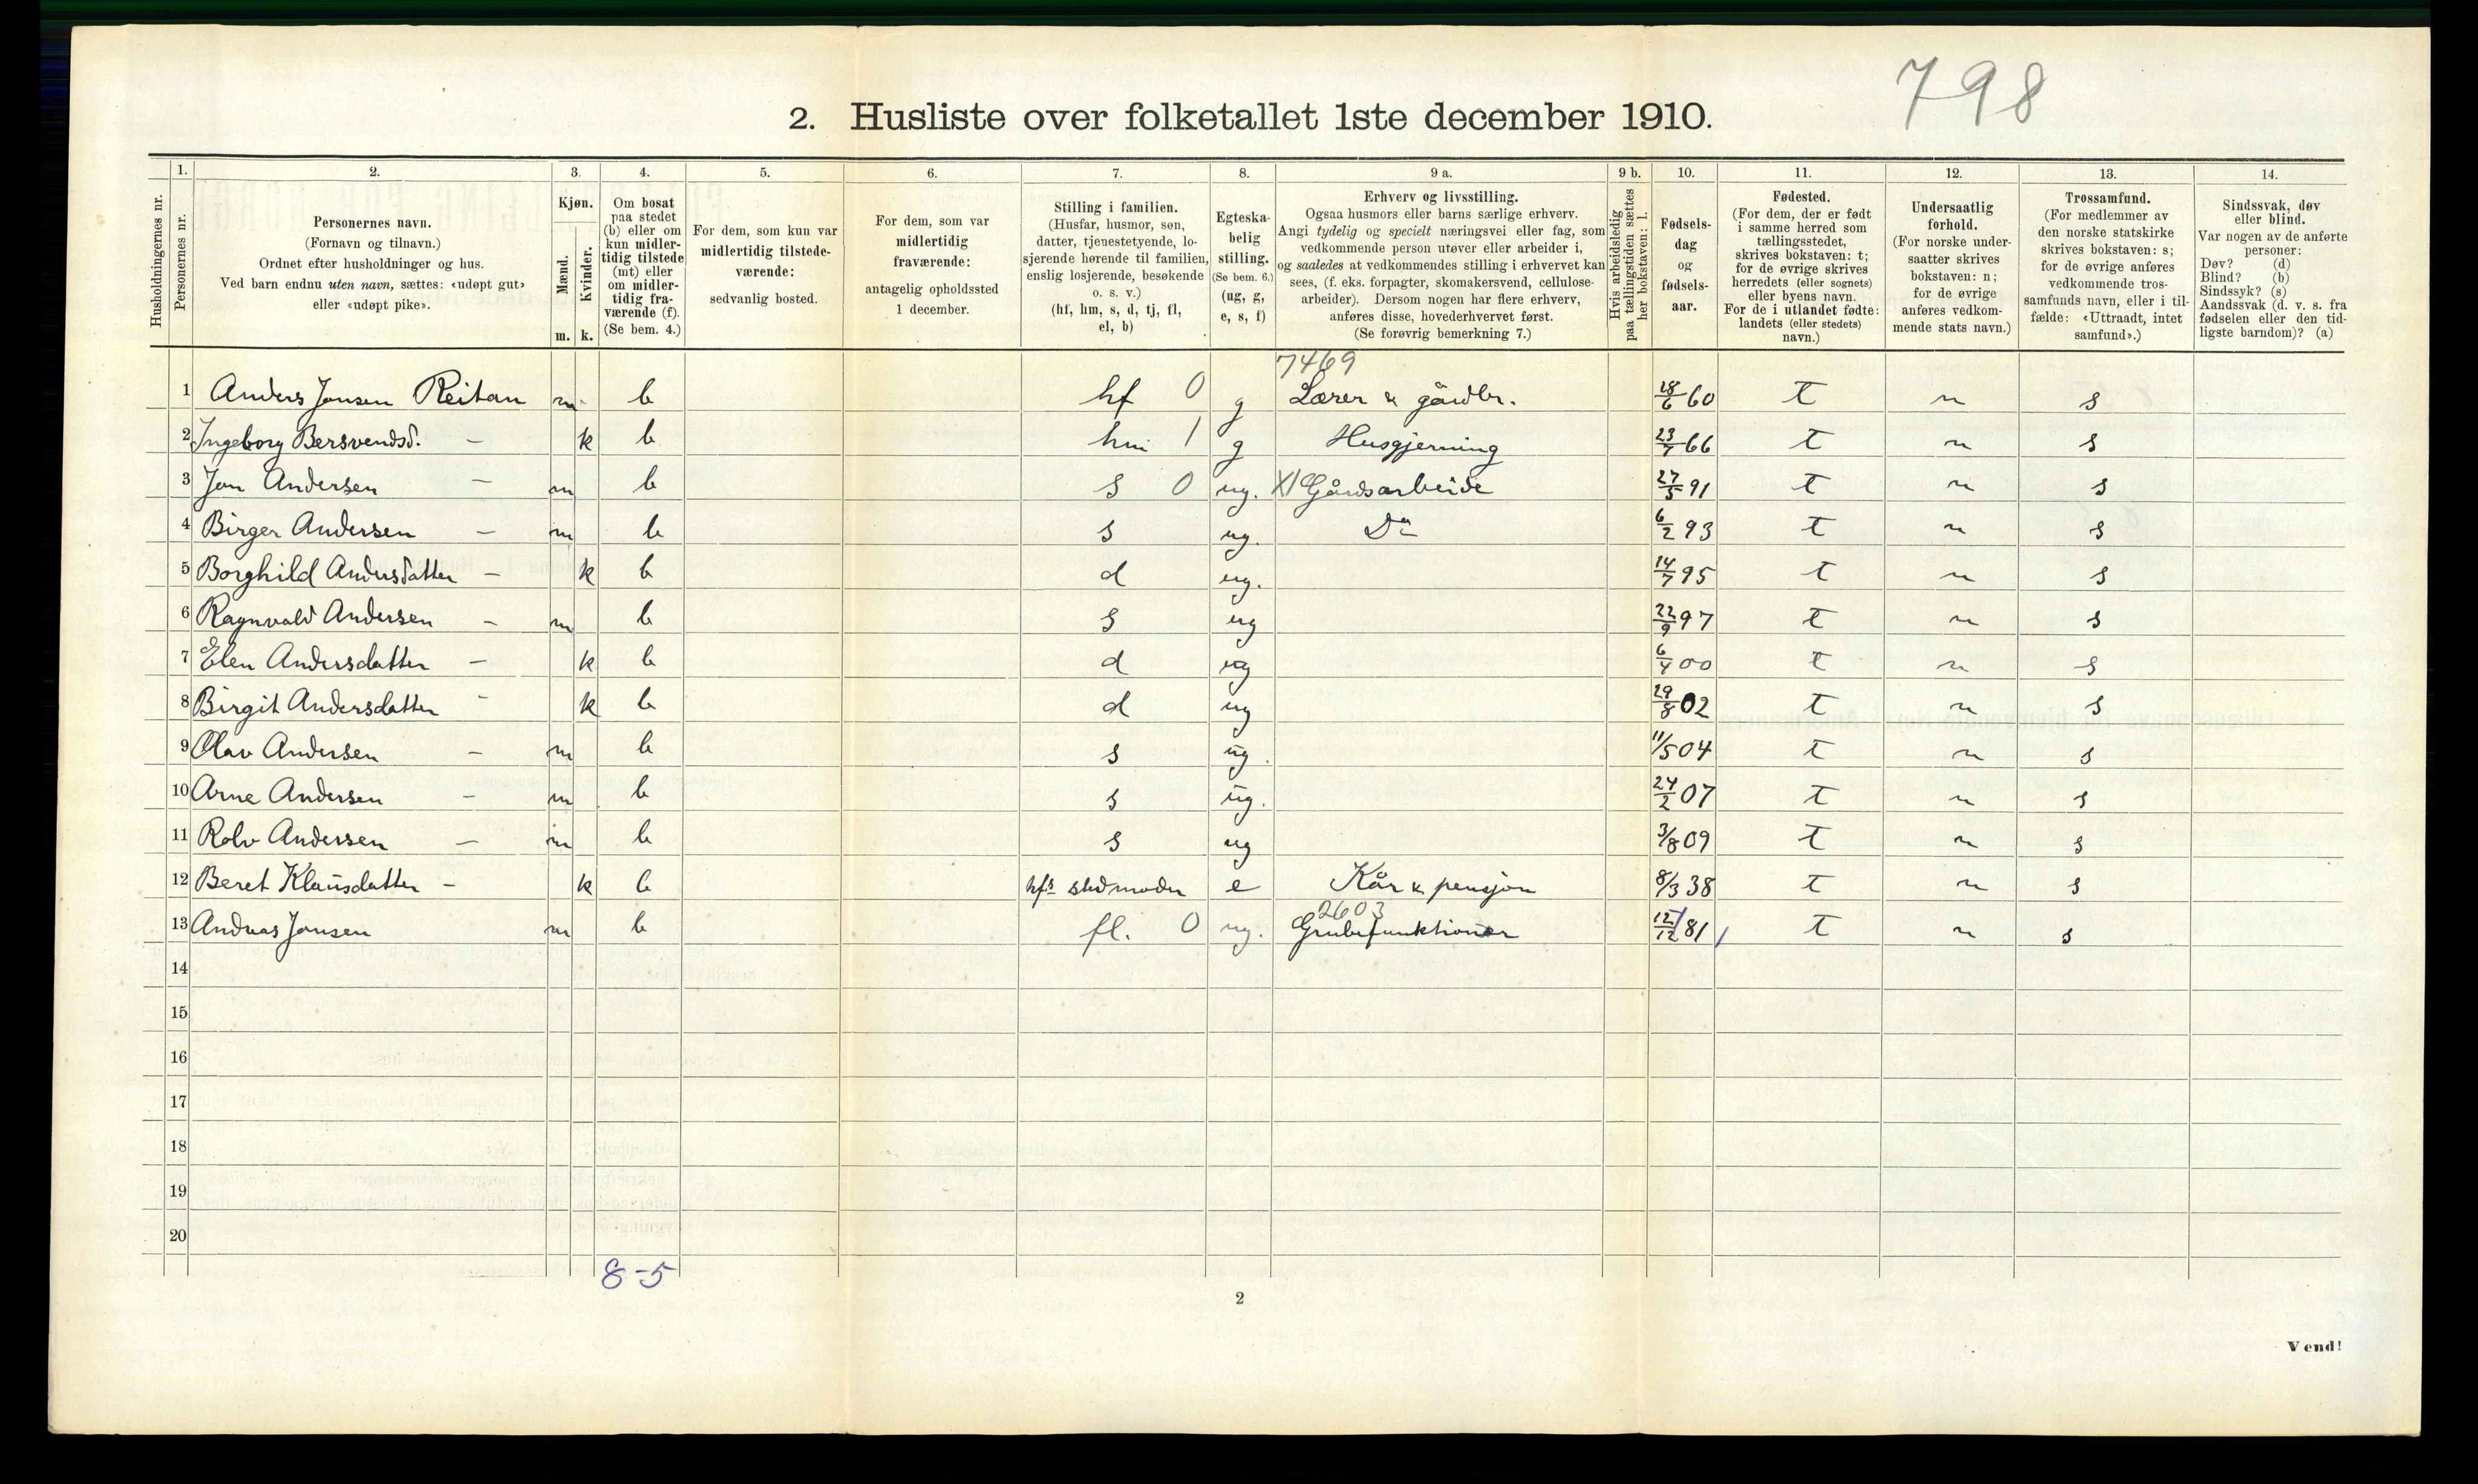 798
2. Husliste over folketallet 1ste december 1910.
Husholdningernes nr.
1.
Personernes nr.
2.
Personernes navn.
(Fornavn og tilnavn.)
Ordnet efter husholdninger og hus.
Ved barn endnu uten navn, sættes: «udøpt gut»
eller «udøpt pike».
3.
Kjøn.
Mænd.
Kvinder.
m. k.
4.
Om bosat
paa stedet
(b) eller om
kun midler-
tidig tilstede
(mt) eller
om midler-
tidig fra-
værende (f).
(Se bem. 4.)
5.
For dem, som kun var
midlertidig tilstede-
værende:
sedvanlig bosted.
6.
For dem, som var
midlertidig
fraværende:
antagelig opholdssted
1 december.
7.
Stilling i familien.
(Husfar, husmor, søn,
datter, tjenestetyende, lo-
sjerende hørende til familien,
enslig losjerende, besøkende
o. s. v.)
(hf, hm, s, d, tj, fl,
el, b)
8.
Egteska-
belig
stilling.
(Se bem. 6.)
(ug, g,
e, s, f)
9 a.
Erhverv og livsstilling.
Ogsaa husmors eller barns særlige erhverv.
Angi tydelig og specielt næringsvei eller fag, som
vedkommende person utøver eller arbeider i,
og saaledes at vedkommendes stilling i erhvervet kan
sees, (f. eks. forpagter, skomakersvend, cellulose-
arbeider). Dersom nogen har flere erhverv,
anføres disse, hovederhvervet først.
(Se forøvrig bemerkning 7.)
9 b.
Hvis arbeidsledig
paa tællingstiden sættes
her bokstaven: l.
10.
Fødsels-
dag
og
fødsels-
aar.
11.
Fødested.
(For dem, der er født
i samme herred som
tællingsstedet,
skrives bokstaven: t;
for de øvrige skrives
herredets (eller sognets)
eller byens navn.
For de i utlandet fødte:
landets (eller stedets)
navn.)
12.
Undersaatlig
forhold.
(For norske under-
saatter skrives
bokstaven: n;
for de øvrige
anføres vedkom-
mende stats navn.)
13.
Trossamfund.
(For medlemmer av
den norske statskirke
skrives bokstaven: s;
for de øvrige anføres
vedkommende tros-
samfunds navn, eller i til-
fælde: «Uttraadt, intet
samfund».)
14.
Sindssvak, døv
eller blind.
Var nogen av de anførte
personer:
Døv? (d)
Blind? (b)
Sindssyk? (s)
Aandssvak (d. v. s. fra
fødselen eller den tid-
ligste barndom)? (a)
7469
1 Anders Jonsen Reitan m b hf 0 g Lærer & gårdbr. 18/6 60 t n s
2 Ingeborg Bersvendsd. — k b hm 1 g Husgjerning 23/7 66 t n s
3 Jon Andersen — m b s 0 ug. X1 Gårdsarbeide 27/5 91 t n s
4 Birger Andersen — m b s ug. Do 6/2 93 t n s
5 Borghild Andersdatter — k b d ug. 14/7 95 t n s
6 Ragnvald Andersen — m b s ug 22/9 97 t n s
7 Elen Andersdatter — k b d ug 6/4 00 t n s
8 Birgit Andersdatter — k b d ug 29/8 02 t n s
9 Olav Andersen — m b s ug. 11/5 04 t n s
10 Arne Andersen — m b s ug. 24/2 07 t n s
11 Rolv Andersen — m b s ug 3/8 09 t n s
12 Beret Klausdatter — k b hfs stedmoder e Kår & pensjon 8/3 38 t n s
2603
13 Andreas Jonsen m b fl. 0 ug. Grubefunktionær 12/12 81 t n s
14
15
16
17
18
19
20
8-5
2
Vend!